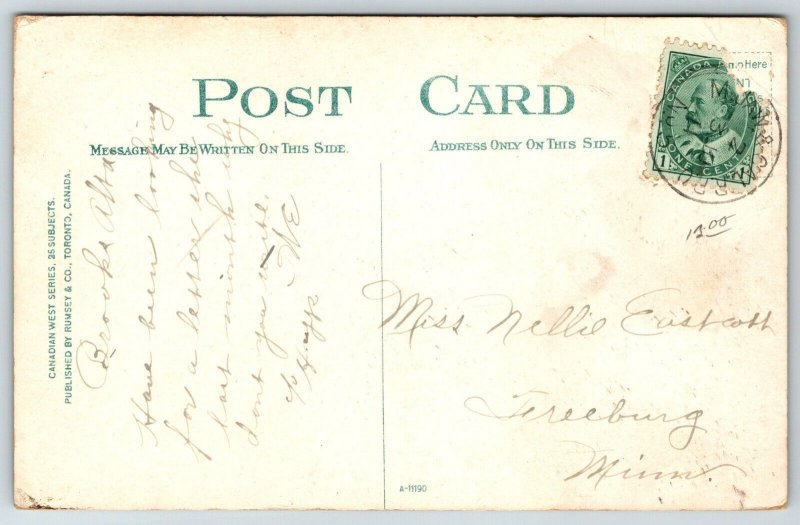 POST CARD
MESSAGE MAY BE WRITTEN ON THIS SIDE.
ADDRESS ONLY ON THIS SIDE.
CANADIAN WEST SERIES, 25 SUBJECTS.
PUBLISHED BY RUMSEY & CO., TORONTO, CANADA.
Brooks Alta
Have been looking
for a letter the
last month why
dont you write.
W E
CANADA
ONE CENT
1
Here
M.
12.00
Miss Nellie Eastcott
Freeburg
Minn.
A-11190